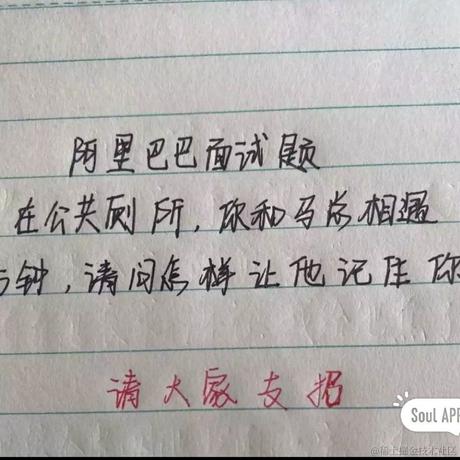 阿里巴巴面试题
在公共厕所，你和马总相遇
钟，请问怎样让他记住你
请大家支招
Soul APP
@稀土掘金技术社区